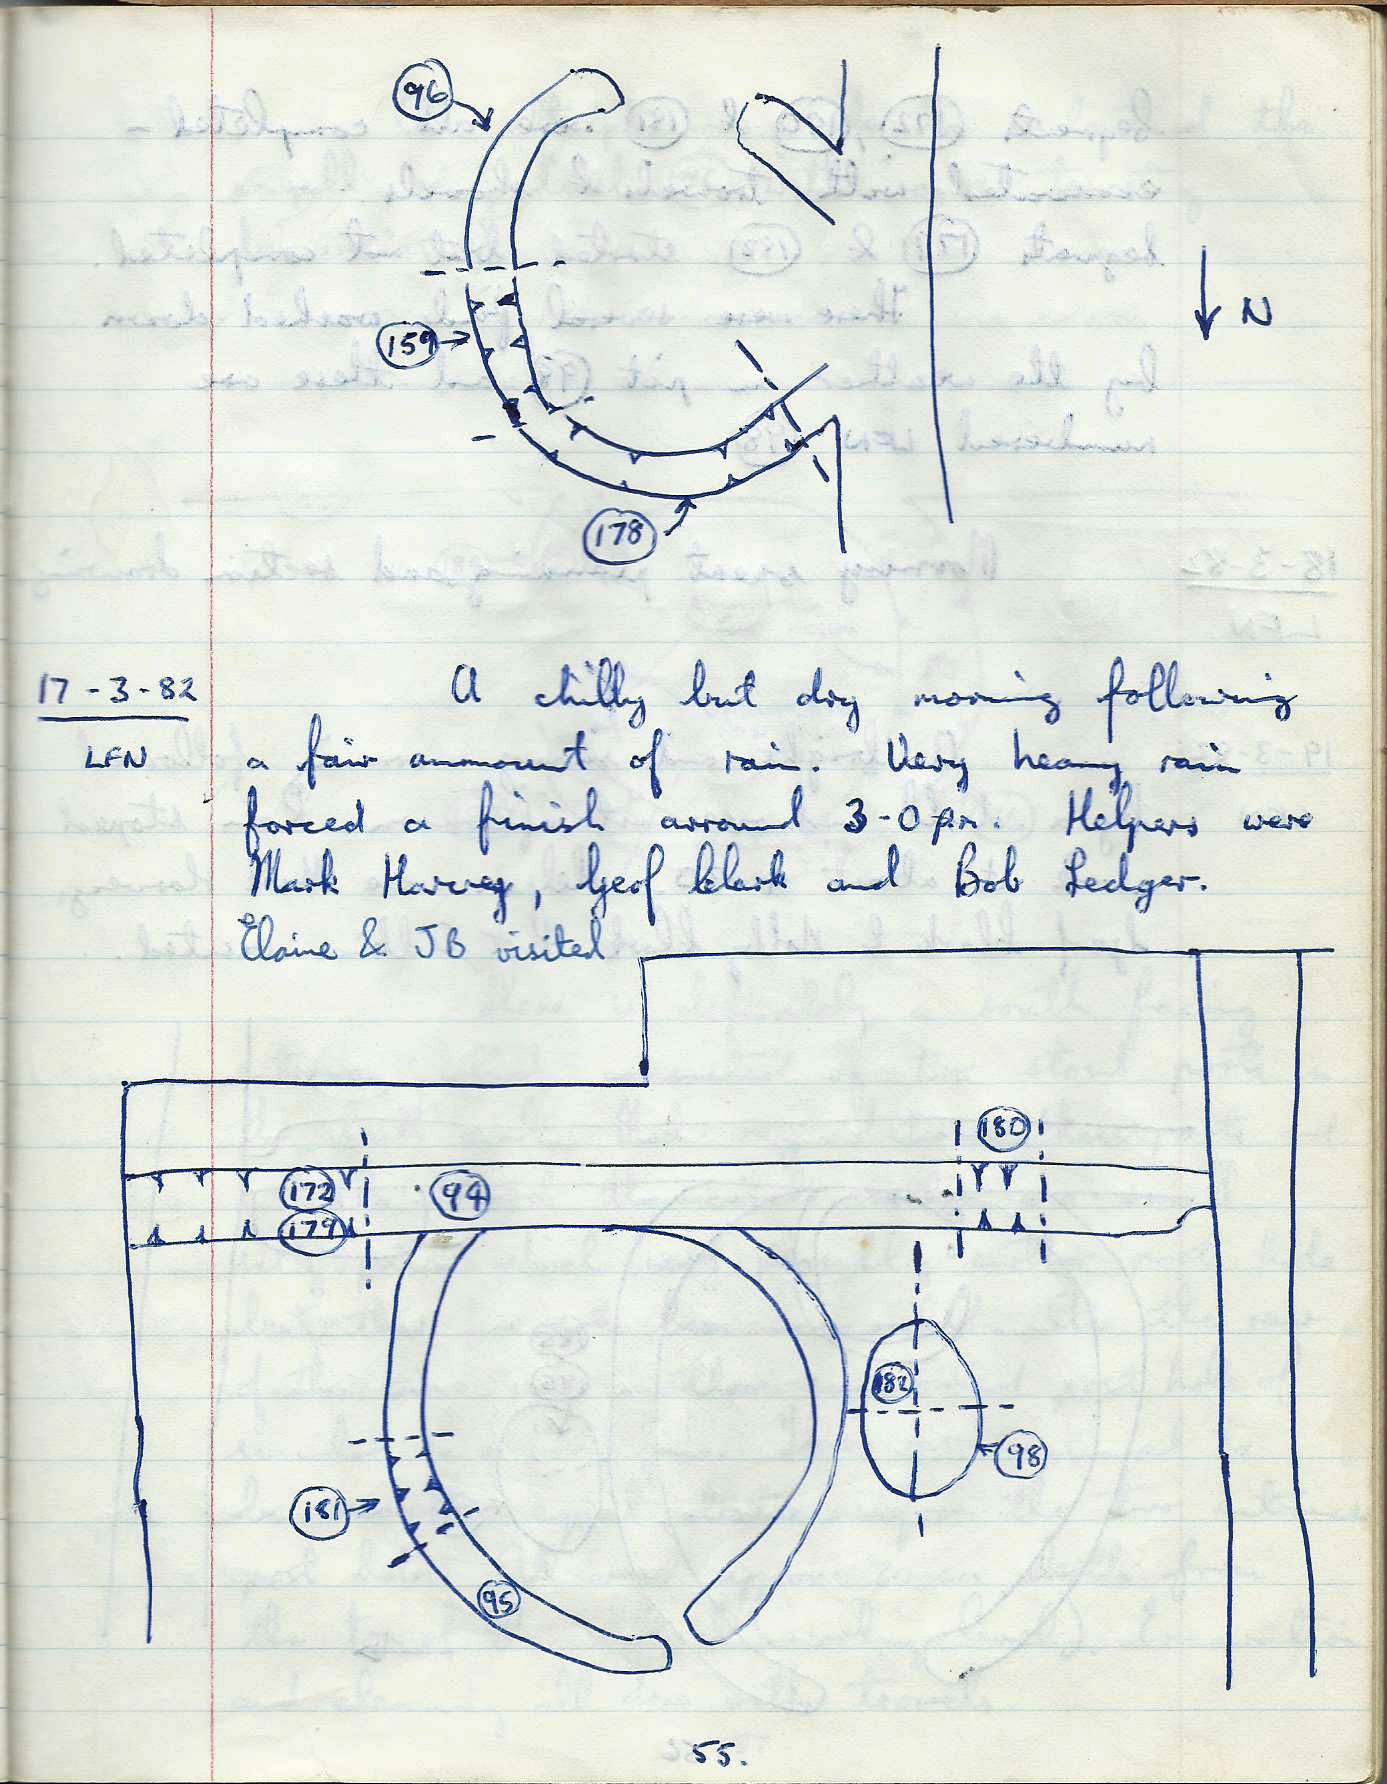 96
159
N
178
17-3-82
A chilly but dry morning following
LFN
a fair ammount of rain. Very heavy rain
forced a finish arround 3-0 pm. Helpers were
Mark Harvey, Geof Clark and Bob Ledger.
Elaine & JB visited
180
172
94
179
182
98
181
95
55.